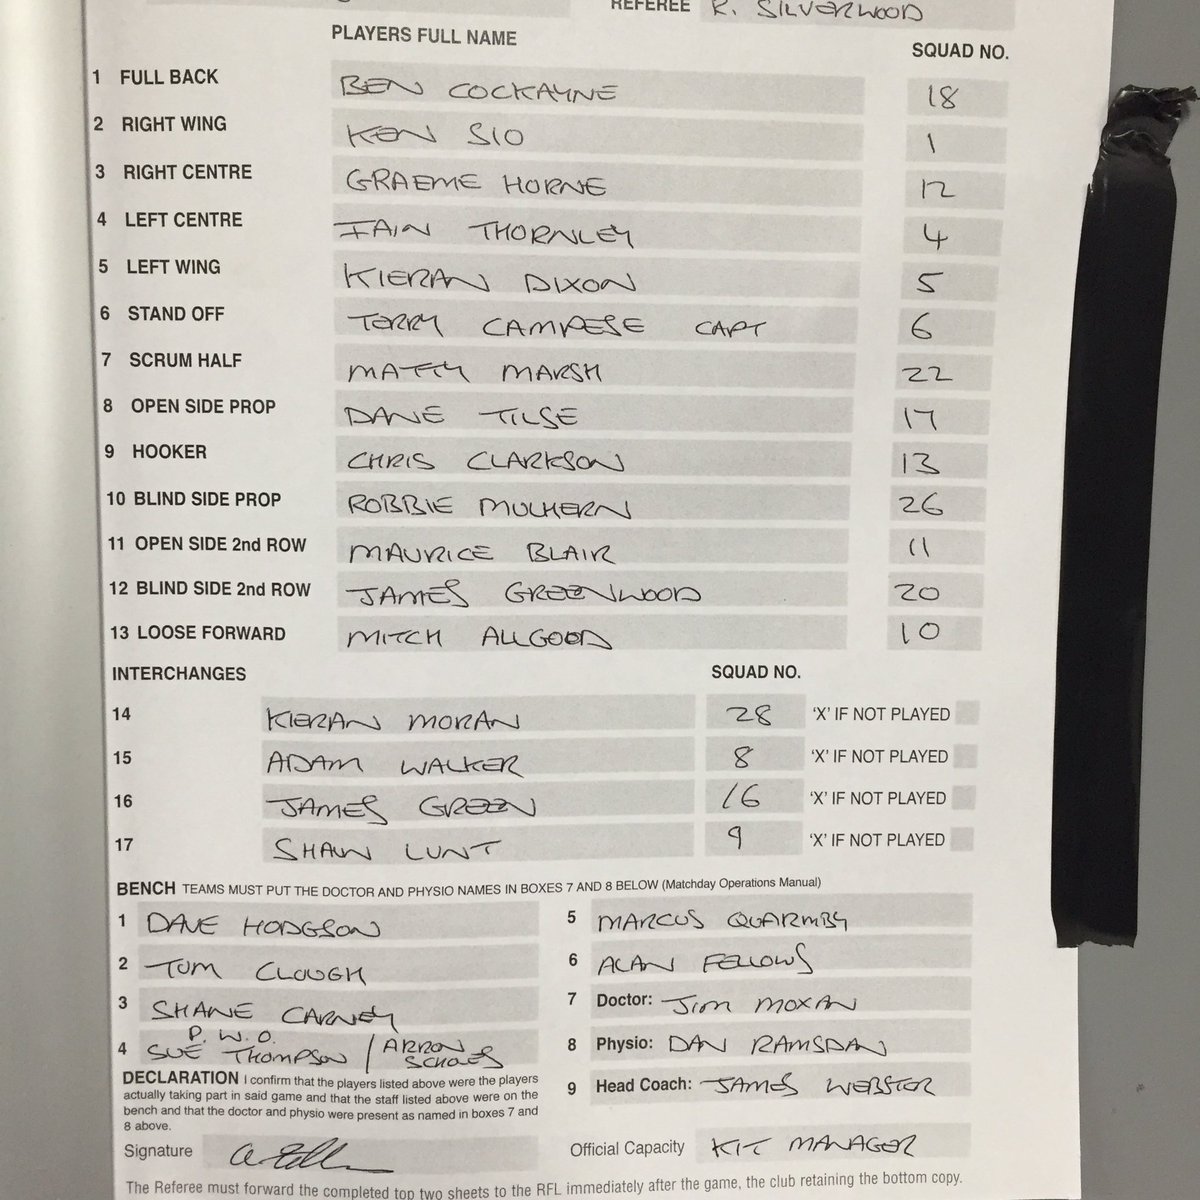 REFEREE R. SILVERWOOD
PLAYERS FULL NAME SQUAD NO.
1 FULL BACK BEN COCKAYNE 18
2 RIGHT WING KEN SIO 1
3 RIGHT CENTRE GRAEME HORNE 12
4 LEFT CENTRE IAIN THORNLEY 4
5 LEFT WING KIERAN DIXON 5
6 STAND OFF TERRY CAMPESE CAPT 6
7 SCRUM HALF MATTY MARSH 22
8 OPEN SIDE PROP DANE TILSE 17
9 HOOKER CHRIS CLARKSON 13
10 BLIND SIDE PROP ROBBIE MULHERN 26
11 OPEN SIDE 2nd ROW MAURICE BLAIR 11
12 BLIND SIDE 2nd ROW JAMES GREENWOOD 20
13 LOOSE FORWARD MITCH ALLGOOD 10
INTERCHANGES SQUAD NO.
14 KIERAN MORAN 28 'X' IF NOT PLAYED
15 ADAM WALKER 8 'X' IF NOT PLAYED
16 JAMES GREEN 16 'X' IF NOT PLAYED
17 SHAUN LUNT 9 'X' IF NOT PLAYED
BENCH TEAMS MUST PUT THE DOCTOR AND PHYSIO NAMES IN BOXES 7 AND 8 BELOW (Matchday Operations Manual)
1 DAVE HODGSON
2 TOM CLOUGH
3 SHANE CARNEY
P.W.O.
4 SUE THOMPSON / ARRON SCHOLES
5 MARCUS QUARMBY
6 ALAN FELLOWS
7 Doctor: JIM MOXAN
8 Physio: DAN RAMSDAN
9 Head Coach: JAMES WEBSTER
DECLARATION I confirm that the players listed above were the players
actually taking part in said game and that the staff listed above were on the
bench and that the doctor and physio were present as named in boxes 7 and
8 above.
Signature
Official Capacity KIT MANAGER
The Referee must forward the completed top two sheets to the RFL immediately after the game, the club retaining the bottom copy.